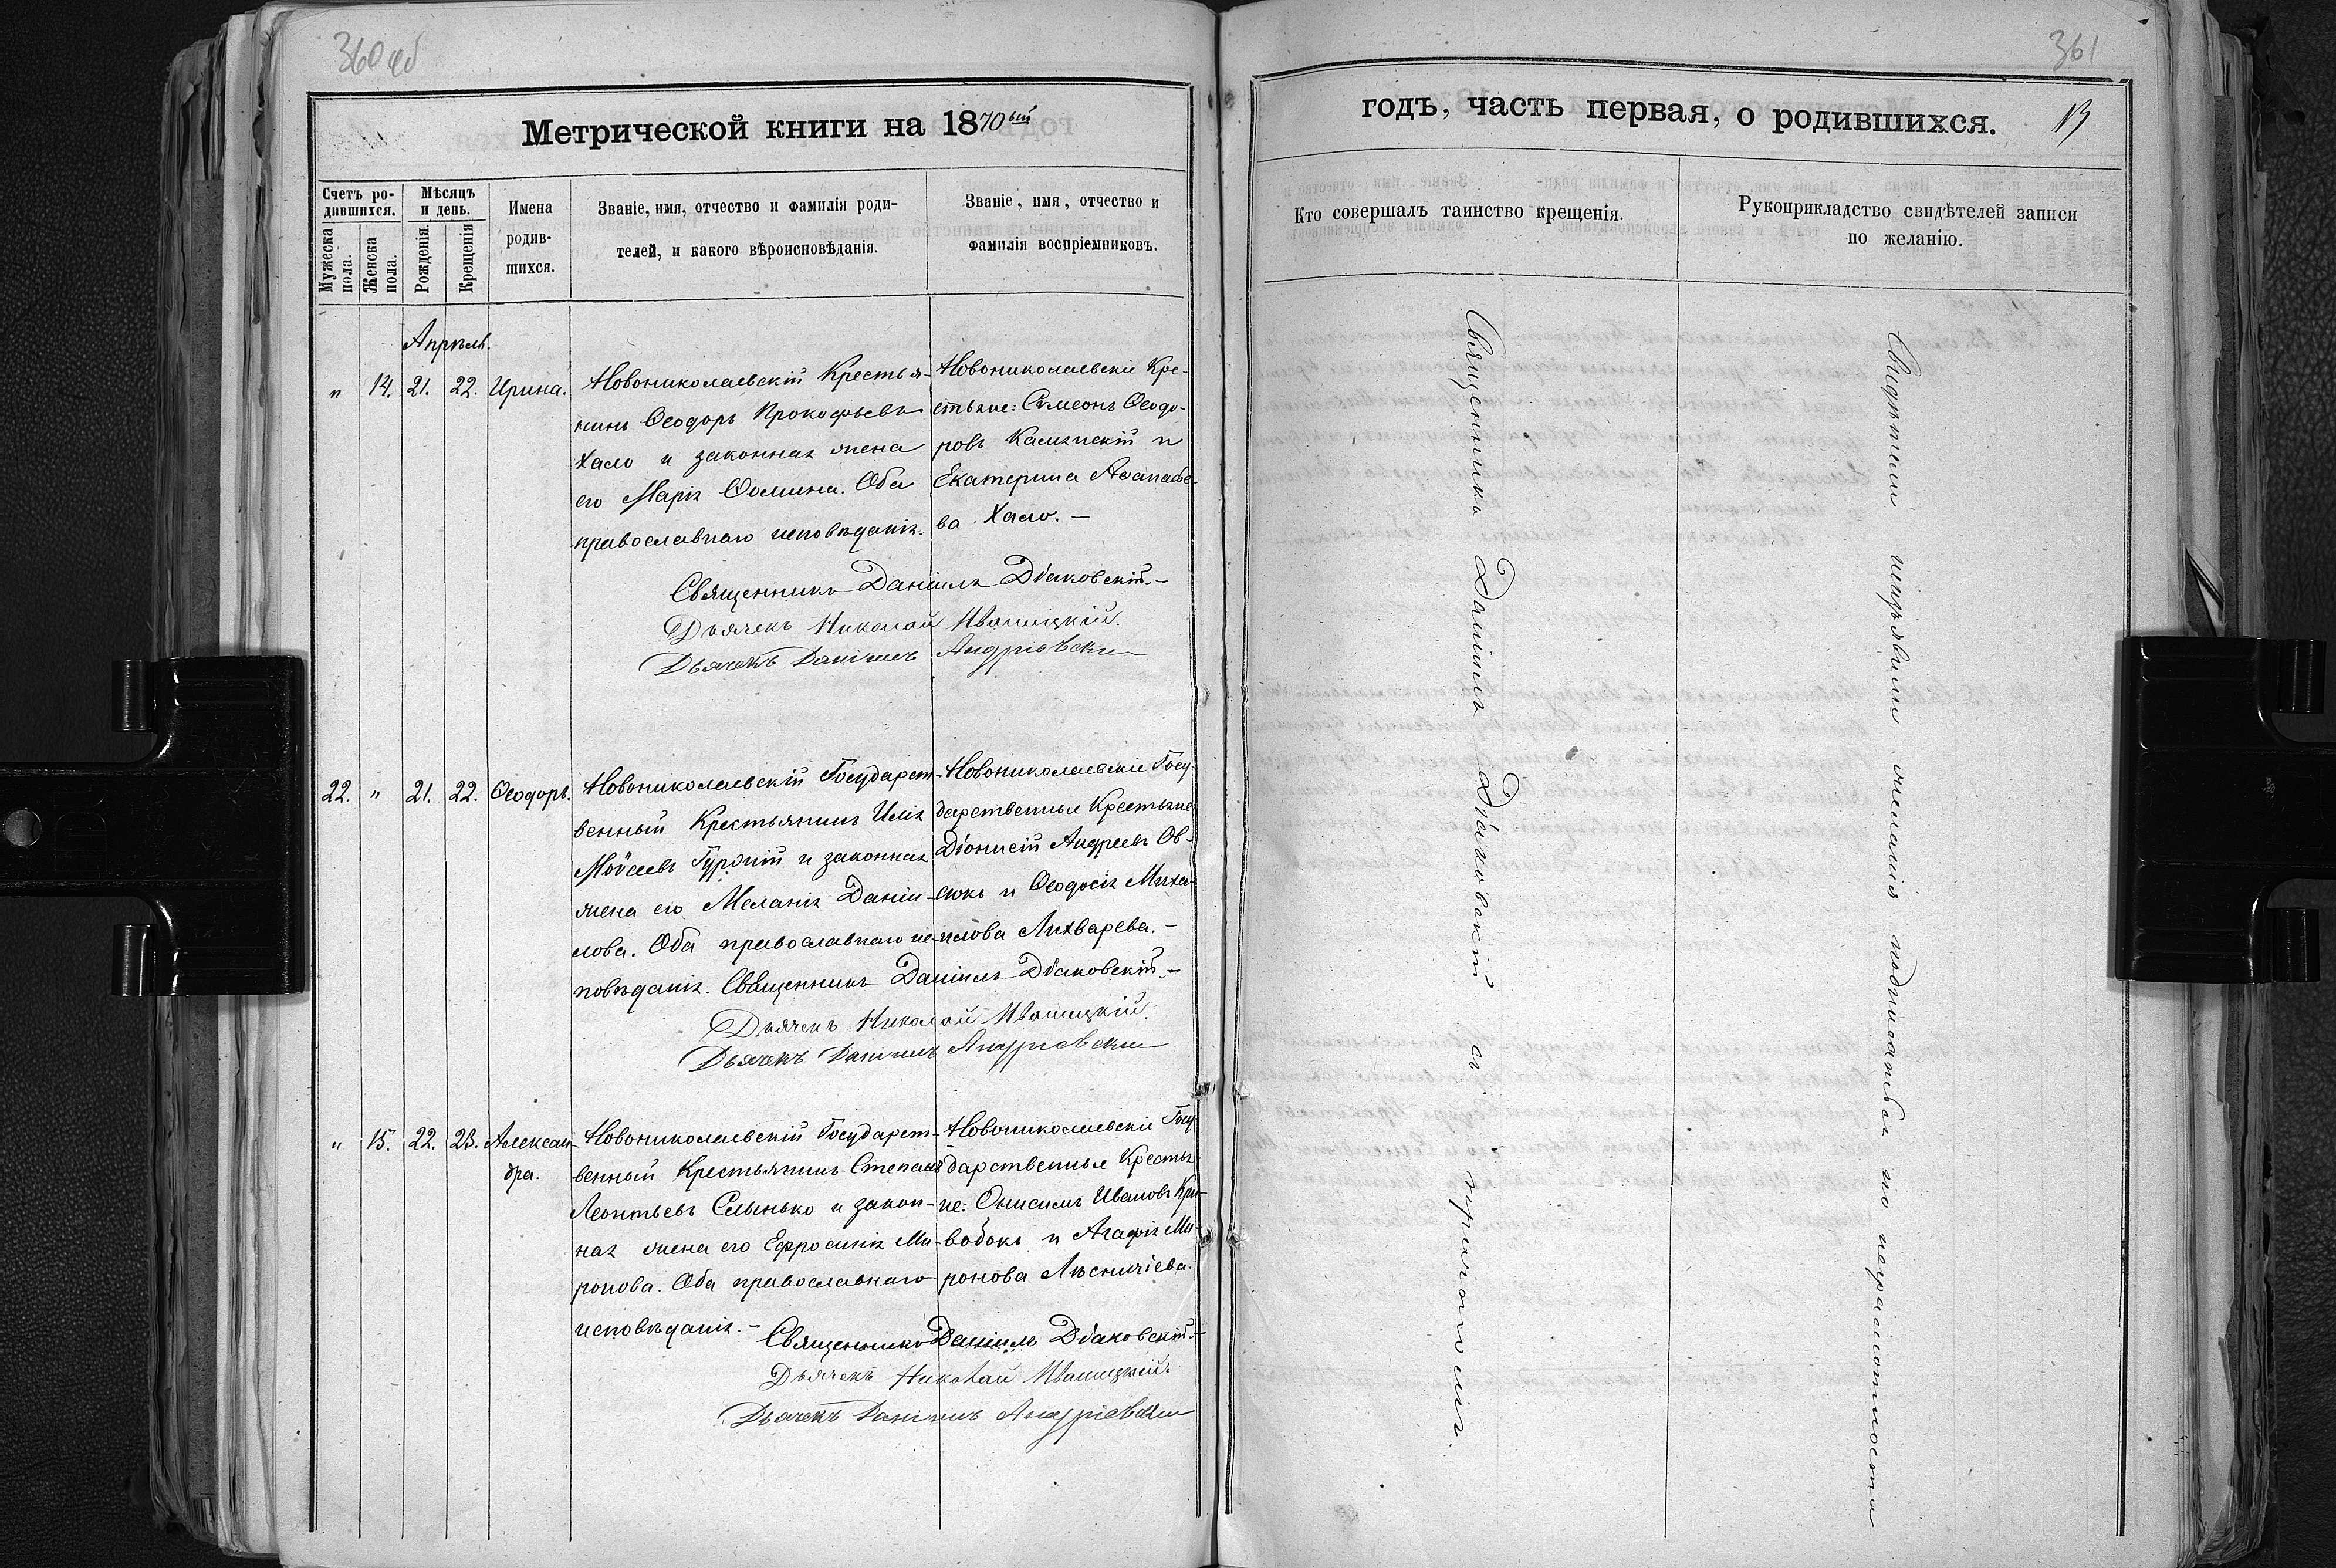 360 об
Метрической книги на 1870ый
Счетъ ро-
дившихся.
Мѣсяцъ
и день.
Мужеска
пола.
Женска
пола.
Рожденія.
Крещенія
Имена
родив-
шихся.
Званіе, имя, отчество и фамилія роди-
телей, и какого вѣроисповѣданія.
Званіе, имя, отчество и
фамилія воспріемниковъ.
Апрѣль.
" 14. 21. 22. Ирина.
Новониколаевскій Крестья-
нинъ Ѳеодоръ Прокофьевъ
Хало и законная жена
его Марія Ѳомина. Оба
православнаго исповѣданія.
Новониколаевскіе Кре-
стьяне: Сѵмеонъ Ѳеодо-
ровъ и
Екатерина Аѳанасье-
ва Хало. –
Священникъ Даніилъ Діаковскій. –
Дьячекъ Николай Ивашицкій.
Дьячекъ Даніилъ Андріевскій
22. " 21. 22. Ѳеодоръ.
Новониколаевскій Государст-
венный Крестьянинъ Илія
Моѵсеевъ и законная
жена его Меланія Даніи-
лова. Оба православнаго ис-
повѣданія.
Новониколаевскіе Госу-
дарственные Крестьяне
Діонисій Андреевъ Ов-
сюкъ и Ѳеодосія Миха-
илова Лихварева. –
Священникъ Даніилъ Діаковскій. –
Дьячекъ Николай Ивашицкій.
Дьячекъ Даніилъ Андріевскій
" 15. 22. 23. Алексан-
дра.
Новониколаевскій Государст-
венный Крестьянинъ Степанъ
Леонтьевъ Слынько и закон-
ная жена его Ефросинія Ми-
ронова. Оба православнаго
исповѣданія. –
Новониколаевскіе Госу-
дарственные Крестья-
не: Онисимъ Ивановъ Кри-
вобокъ и Агафія Ми-
ронова Лѣсничіева.
Священникъ Даніилъ Діаковскій. –
Дьячекъ Николай Ивашицкій.
Дьячекъ Даніилъ Андріевскій
361
годъ, часть первая, о родившихся.
Кто совершалъ таинство крещенія.
Рукоприкладство свидѣтелей записи
по желанію.
Священникъ Даніилъ Діаковскій съ причтомъ.
Свидѣтели неизъявили желанія подписаться по неграмотности